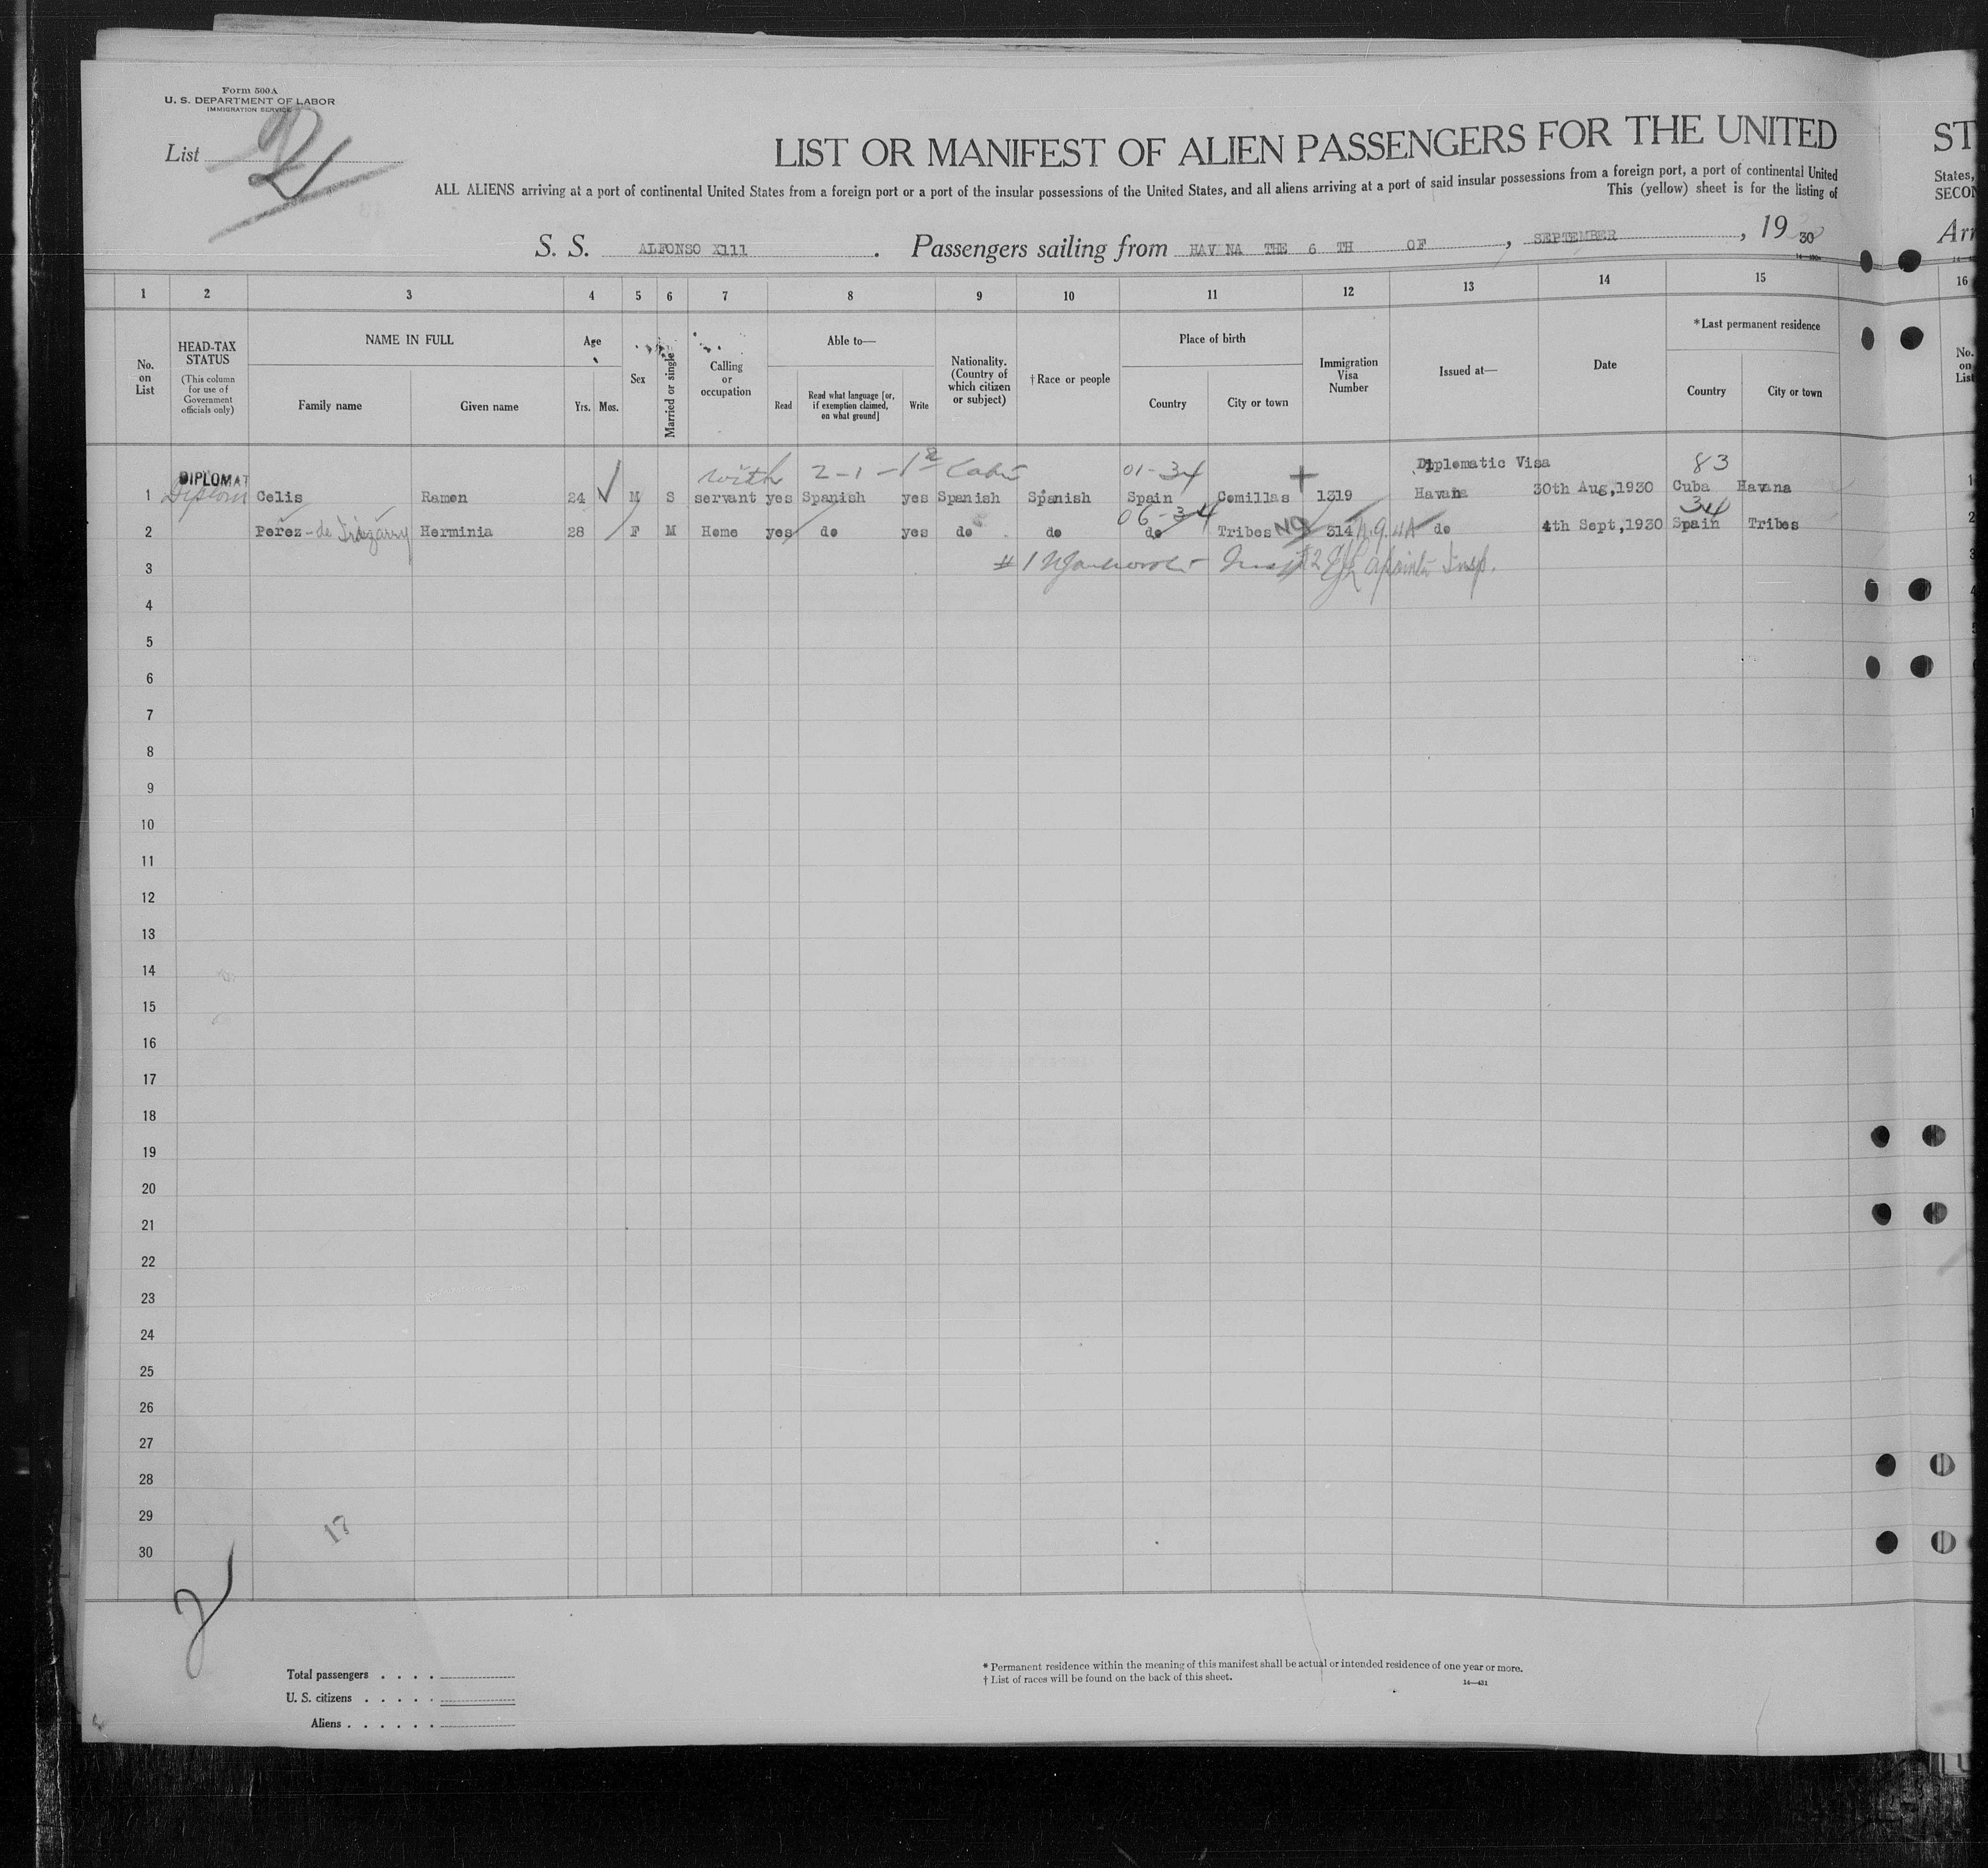 Form 500A
U. S. DEPARTMENT OF LABOR
IMMIGRATION SERVICE
List 2
LIST OR MANIFEST OF ALIEN PASSENGERS FOR THE UNITED ST
ALL ALIENS arriving at a port of continental United States from a foreign port or a port of the insular possessions of the United States, and all aliens arriving at a port of said insular possessions from a foreign port, a port of continental United States,
This (yellow) sheet is for the listing of SECON
S. S. ALFONSO X111 . Passengers sailing from HAV NA THE 6 TH OF , SEPTEMBER , 19 30 Arr
1 2 3 4 5 6 7 8 9 10 11 12 13 14 15 16
No. on List
HEAD-TAX STATUS
(This column for use of Government officials only)
NAME IN FULL
Family name
Given name
Age
Yrs.
Mos.
Sex
Married or single
Calling or occupation
Able to—
Read
Read what language [or, if exemption claimed, on what ground]
Write
Nationality. (Country of which citizen or subject)
†Race or people
Place of birth
Country
City or town
Immigration Visa Number
Issued at—
Date
*Last permanent residence
Country
City or town
No. on List
DIPLOMAT with 2-1-1 01-34 + Diplomatic Visa 83
1 Diplom Celis Ramon 24 M S servant yes Spanish yes Spanish Spanish Spain Comillas 1319 Havana 30th Aug,1930 Cuba Havana
06-34 34
2 Perez - de Herminia 28 F M Home yes do yes do do do Tribes NQ 314 do 4th Sept,1930 Spain Tribes
3 #1 Insp.
4
5
6
7
8
9
10
11
12
13
14
15
16
17
18
19
20
21
22
23
24
25
26
27
28
29
30
17
2
Total passengers . . . .
U. S. citizens . . . . .
Aliens . . . . . .
* Permanent residence within the meaning of this manifest shall be actual or intended residence of one year or more.
† List of races will be found on the back of this sheet.
14—431